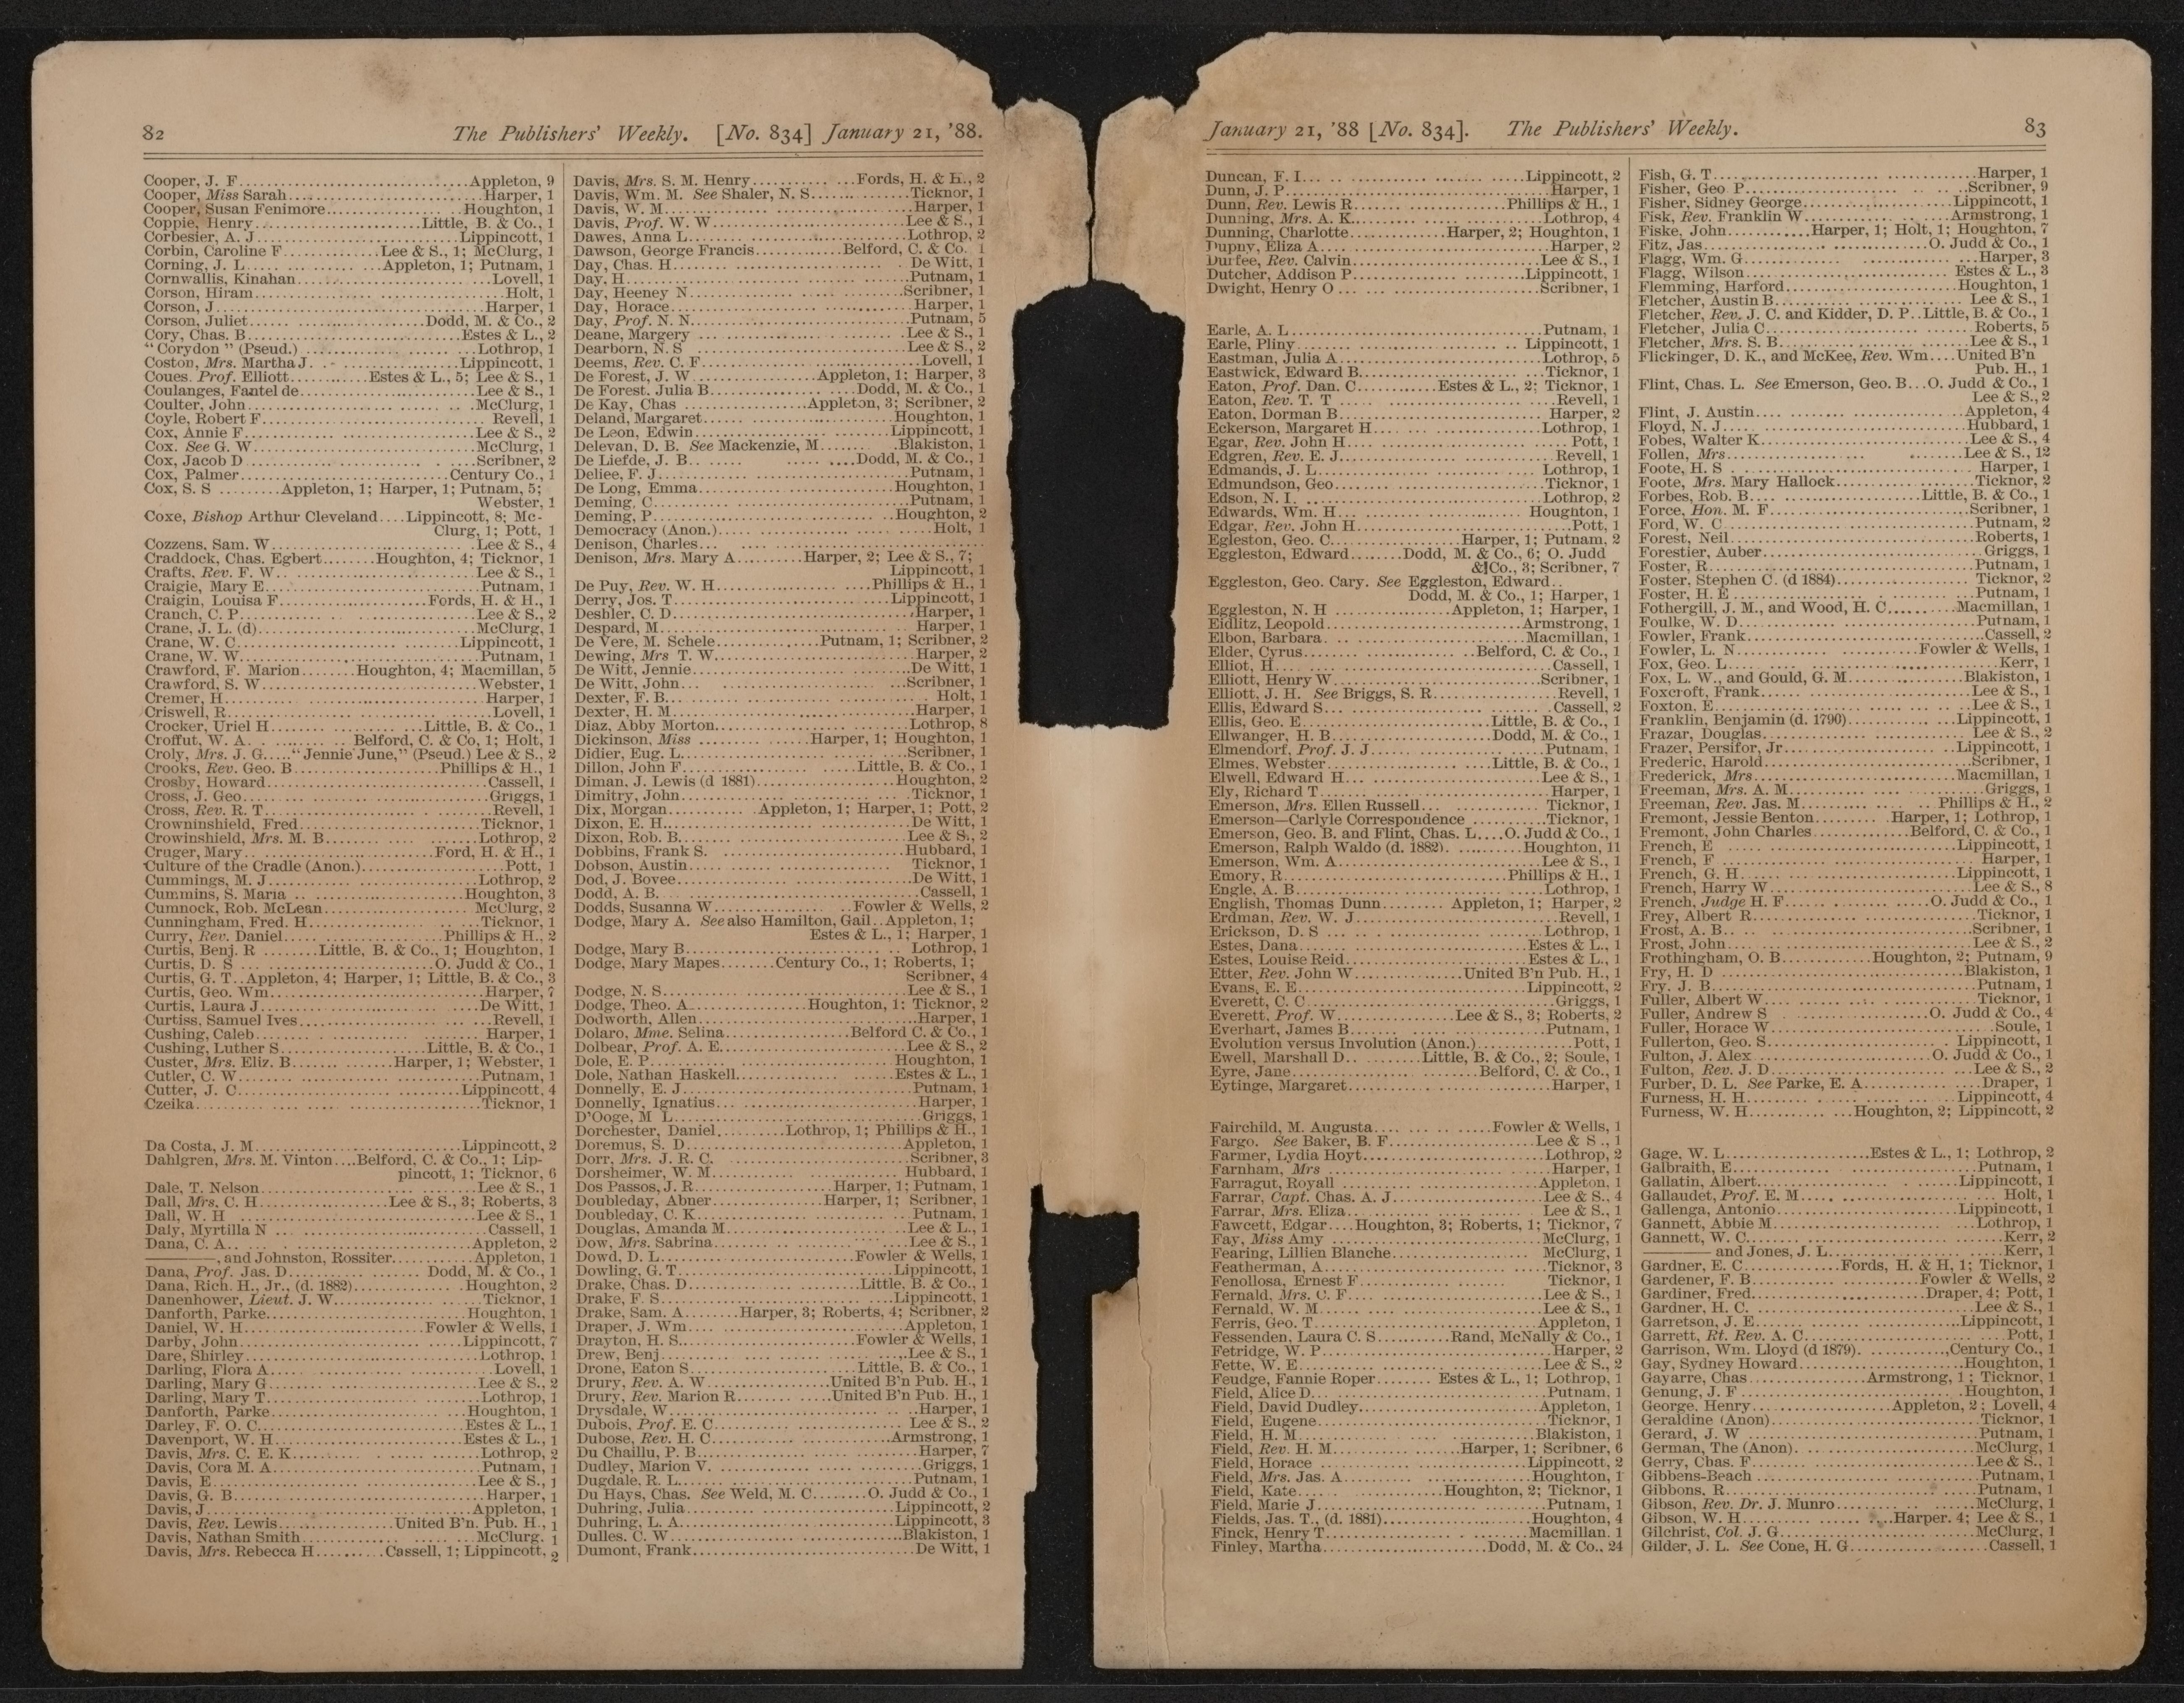 82 The Publishers' Weekly. [No. 834] January 21, '88.
Cooper, J. F. Appleton, 9
Cooper, Miss Sarah Harper, 1
Cooper, Susan Fenimore Houghton, 1
Coppie, Henry Little, B. & Co., 1
Corbesier, A. J Lippincott, 1
Corbin, Caroline F Lee & S., 1; McClurg, 1
Corning, J. L Appleton, 1; Putnam, 1
Cornwallis, Kinahan Lovell, 1
Corson, Hiram Holt, 1
Corson, J Harper, 1
Corson, Juliet Dodd, M. & Co., 2
Cory, Chas. B Estes & L., 2
"Corydon" (Pseud.) Lothrop, 1
Coston, Mrs. Martha J. Lippincott, 1
Coues. Prof. Elliott Estes & L., 5; Lee & S., 1
Coulanges, Fantel de Lee & S., 1
Coulter, John McClurg, 1
Coyle, Robert F Revell, 1
Cox, Annie F Lee & S., 2
Cox. See G. W McClurg, 1
Cox, Jacob D Scribner, 2
Cox, Palmer Century Co., 1
Cox, S. S Appleton, 1; Harper, 1; Putnam, 5;
Webster, 1
Coxe, Bishop Arthur Cleveland Lippincott, 8; Mc-
Clurg, 1; Pott, 1
Cozzens, Sam. W Lee & S., 4
Craddock, Chas. Egbert Houghton, 4; Ticknor, 1
Crafts, Rev. F. W Lee & S., 1
Craigie, Mary E Putnam, 1
Craigin, Louisa F Fords, H. & H., 1
Cranch, C. P Lee & S., 2
Crane, J. L. (d) McClurg, 1
Crane, W. C Lippincott, 1
Crane, W. W Putnam, 1
Crawford, F. Marion Houghton, 4; Macmillan, 5
Crawford, S. W Webster, 1
Cremer, H Harper, 1
Criswell, R Lovell, 1
Crocker, Uriel H Little, B. & Co., 1
Croffut, W. A. Belford, C. & Co, 1; Holt, 1
Croly, Mrs. J. G. "Jennie June," (Pseud.) Lee & S., 2
Crooks, Rev. Geo. B Phillips & H., 1
Crosby, Howard Cassell, 1
Cross, J. Geo Griggs, 1
Cross, Rev. R. T Revell, 1
Crowninshield, Fred Ticknor, 1
Crowinshield, Mrs. M. B Lothrop, 2
Cruger, Mary Ford, H. & H., 1
Culture of the Cradle (Anon.) Pott, 1
Cummings, M. J Lothrop, 2
Cummins, S. Maria Houghton, 3
Cumnock, Rob. McLean McClurg, 2
Cunningham, Fred. H Ticknor, 1
Curry, Rev. Daniel Phillips & H., 2
Curtis, Benj. R Little, B. & Co., 1; Houghton, 1
Curtis, D. S O. Judd & Co., 1
Curtis, G. T. Appleton, 4; Harper, 1; Little, B. & Co., 3
Curtis, Geo. Wm Harper, 7
Curtis, Laura J De Witt, 1
Curtiss, Samuel Ives Revell, 1
Cushing, Caleb Harper, 1
Cushing, Luther S Little, B. & Co., 1
Custer, Mrs. Eliz. B Harper, 1; Webster, 1
Cutler, C. W Putnam, 1
Cutter, J. C Lippincott, 4
Czeika Ticknor, 1
Da Costa, J. M Lippincott, 2
Dahlgren, Mrs. M. Vinton Belford, C. & Co., 1; Lip-
pincott, 1; Ticknor, 6
Dale, T. Nelson Lee & S., 1
Dall, Mrs. C. H Lee & S., 3; Roberts, 3
Dall, W. H Lee & S., 1
Daly, Myrtilla N Cassell, 1
Dana, C. A. Appleton, 2
———, and Johnston, Rossiter Appleton, 1
Dana, Prof. Jas. D Dodd, M. & Co., 1
Dana, Rich. H., Jr., (d. 1882) Houghton, 2
Danenhower, Lieut. J. W Ticknor, 1
Danforth, Parke Houghton, 1
Daniel, W. H Fowler & Wells, 1
Darby, John Lippincott, 7
Dare, Shirley Lothrop, 1
Darling, Flora A Lovell, 1
Darling, Mary G Lee & S., 2
Darling, Mary T Lothrop, 1
Danforth, Parke Houghton, 1
Darley, F. O. C. Estes & L., 1
Davenport, W. H Estes & L., 1
Davis, Mrs. C. E. K Lothrop, 2
Davis, Cora M. A Putnam, 1
Davis, E Lee & S., 1
Davis, G. B Harper, 1
Davis, J Appleton, 1
Davis, Rev. Lewis United B'n. Pub. H., 1
Davis, Nathan Smith McClurg. 1
Davis, Mrs. Rebecca H Cassell, 1; Lippincott, 2
Davis, Mrs. S. M. Henry Fords, H. & H., 2
Davis, Wm. M. See Shaler, N. S Ticknor, 1
Davis, W. M Harper, 1
Davis, Prof. W. W Lee & S., 1
Dawes, Anna L Lothrop, 2
Dawson, George Francis Belford, C. & Co. 1
Day, Chas. H De Witt, 1
Day, H Putnam, 1
Day, Heeney N Scribner, 1
Day, Horace Harper, 1
Day, Prof. N. N Putnam, 5
Deane, Margery Lee & S., 1
Dearborn, N. S Lee & S., 2
Deems, Rev. C. F Lovell, 1
De Forest, J. W Appleton, 1; Harper, 3
De Forest. Julia B Dodd, M. & Co., 1
De Kay, Chas Appleton, 3; Scribner, 2
Deland, Margaret Houghton, 1
De Leon, Edwin Lippincott, 1
Delevan, D. B. See Mackenzie, M Blakiston, 1
De Liefde, J. B. Dodd, M. & Co., 1
Deliee, F. J Putnam, 1
De Long, Emma Houghton, 1
Deming, C Putnam, 1
Deming, P Houghton, 2
Democracy (Anon.) Holt, 1
Denison, Charles
Denison, Mrs. Mary A Harper, 2; Lee & S., 7;
Lippincott, 1
De Puy, Rev. W. H Phillips & H., 1
Derry, Jos. T Lippincott, 1
Deshler, C. D Harper, 1
Despard, M Harper, 1
De Vere, M. Schele Putnam, 1; Scribner, 2
Dewing, Mrs T. W Harper, 2
De Witt, Jennie De Witt, 1
De Witt, John Scribner, 1
Dexter, F. B. Holt, 1
Dexter, H. M Harper, 1
Diaz, Abby Morton Lothrop, 8
Dickinson, Miss Harper, 1; Houghton, 1
Didier, Eug. L Scribner, 1
Dillon, John F Little, B. & Co., 1
Diman. J. Lewis (d 1881) Houghton, 2
Dimitry, John Ticknor, 1
Dix, Morgan Appleton, 1; Harper, 1; Pott, 2
Dixon, E. H. De Witt, 1
Dixon, Rob. B. Lee & S., 2
Dobbins, Frank S. Hubbard, 1
Dobson, Austin Ticknor, 1
Dod, J. Bovee De Witt, 1
Dodd, A. B. Cassell, 1
Dodds, Susanna W Fowler & Wells, 2
Dodge, Mary A. See also Hamilton, Gail Appleton, 1;
Estes & L., 1; Harper, 1
Dodge, Mary B Lothrop, 1
Dodge, Mary Mapes Century Co., 1; Roberts, 1;
Scribner, 4
Dodge, N. S Lee & S., 1
Dodge, Theo. A Houghton, 1: Ticknor, 2
Dodworth, Allen Harper, 1
Dolaro, Mme. Selina Belford C. & Co., 1
Dolbear, Prof. A. E Lee & S., 2
Dole, E. P. Houghton, 1
Dole, Nathan Haskell Estes & L., 1
Donnelly, E. J Putnam, 1
Donnelly, Ignatius Harper, 1
D'Ooge, M L Griggs, 1
Dorchester, Daniel Lothrop, 1; Phillips & H., 1
Doremus, S. D Appleton, 1
Dorr, Mrs. J. R. C. Scribner, 3
Dorsheimer, W. M Hubbard, 1
Dos Passos, J. R Harper, 1; Putnam, 1
Doubleday, Abner Harper, 1; Scribner, 1
Doubleday, C. K Putnam, 1
Douglas, Amanda M Lee & L., 1
Dow, Mrs. Sabrina Lee & S., 1
Dowd, D. L Fowler & Wells, 1
Dowling, G. T Lippincott, 1
Drake, Chas. D Little, B. & Co., 1
Drake, F. S Lippincott, 1
Drake, Sam. A Harper, 3; Roberts, 4; Scribner, 2
Draper, J. Wm Appleton, 1
Drayton, H. S. Fowler & Wells, 1
Drew, Benj Lee & S., 1
Drone, Eaton S Little, B. & Co., 1
Drury, Rev. A. W United B'n Pub. H., 1
Drury, Rev. Marion R United B'n Pub. H., 1
Drysdale, W Harper, 1
Dubois, Prof. E. C Lee & S., 2
Dubose, Rev. H. C Armstrong, 1
Du Chaillu, P. B Harper, 7
Dudley, Marion V. Griggs, 1
Dugdale, R. L. Putnam, 1
Du Hays, Chas. See Weld, M. C O. Judd & Co., 1
Duhring, Julia Lippincott, 2
Duhring, L. A Lippincott, 3
Dulles. C. W Blakiston, 1
Dumont, Frank De Witt, 1
January 21, '88 [No. 834]. The Publishers' Weekly. 83
Duncan, F. I. Lippincott, 2
Dunn, J. P Harper, 1
Dunn, Rev. Lewis R Phillips & H., 1
Dunning, Mrs. A. K Lothrop, 4
Dunning, Charlotte Harper, 2; Houghton, 1
Dupuy, Eliza A Harper, 2
Durfee, Rev. Calvin Lee & S., 1
Dutcher, Addison P Lippincott, 1
Dwight, Henry O Scribner, 1
Earle, A. L Putnam, 1
Earle, Pliny Lippincott, 1
Eastman, Julia A Lothrop, 5
Eastwick, Edward B Ticknor, 1
Eaton, Prof. Dan. C Estes & L., 2; Ticknor, 1
Eaton, Rev. T. T Revell, 1
Eaton, Dorman B Harper, 2
Eckerson, Margaret H Lothrop, 1
Egar, Rev. John H Pott, 1
Edgren, Rev. E. J. Revell, 1
Edmands, J. L Lothrop, 1
Edmundson, Geo Ticknor, 1
Edson, N. I. Lothrop, 2
Edwards, Wm. H Houghton, 1
Edgar, Rev. John H Pott, 1
Egleston, Geo. C Harper, 1; Putnam, 2
Eggleston, Edward Dodd, M. & Co., 6; O. Judd
& Co., 3; Scribner, 7
Eggleston, Geo. Cary. See Eggleston, Edward
Dodd, M. & Co., 1; Harper, 1
Eggleston, N. H Appleton, 1; Harper, 1
Eidlitz, Leopold Armstrong, 1
Elbon, Barbara Macmillan, 1
Elder, Cyrus Belford, C. & Co., 1
Elliot, H Cassell, 1
Elliott, Henry W Scribner, 1
Elliott, J. H. See Briggs, S. R Revell, 1
Ellis, Edward S Cassell, 2
Ellis, Geo. E Little, B. & Co., 1
Ellwanger, H. B Dodd, M. & Co., 1
Elmendorf, Prof. J. J Putnam, 1
Elmes, Webster Little, B. & Co., 1
Elwell, Edward H Lee & S., 1
Ely, Richard T Harper, 1
Emerson, Mrs. Ellen Russell Ticknor, 1
Emerson—Carlyle Correspondence Ticknor, 1
Emerson, Geo. B. and Flint, Chas. L O. Judd & Co., 1
Emerson, Ralph Waldo (d. 1882). Houghton, 11
Emerson, Wm. A Lee & S., 1
Emory, R Phillips & H., 1
Engle, A. B Lothrop, 1
English, Thomas Dunn Appleton, 1; Harper, 2
Erdman, Rev. W. J Revell, 1
Erickson, D. S Lothrop, 1
Estes, Dana Estes & L., 1
Estes, Louise Reid Estes & L., 1
Etter, Rev. John W United B'n Pub. H., 1
Evans, E. E Lippincott, 2
Everett, C. C Griggs, 1
Everett, Prof. W Lee & S., 3; Roberts, 2
Everhart, James B Putnam, 1
Evolution versus Involution (Anon.) Pott, 1
Ewell, Marshall D Little, B. & Co., 2; Soule, 1
Eyre, Jane Belford, C. & Co., 1
Eytinge, Margaret Harper, 1
Fairchild, M. Augusta Fowler & Wells, 1
Fargo. See Baker, B. F Lee & S., 1
Farmer, Lydia Hoyt Lothrop, 2
Farnham, Mrs Harper, 1
Farragut, Royall Appleton, 1
Farrar, Capt. Chas. A. J Lee & S., 4
Farrar, Mrs. Eliza Lee & S., 1
Fawcett, Edgar Houghton, 3; Roberts, 1; Ticknor, 7
Fay, Miss Amy McClurg, 1
Fearing, Lillien Blanche McClurg, 1
Featherman, A Ticknor, 3
Fenollosa, Ernest F Ticknor, 1
Fernald, Mrs. C. F Lee & S., 1
Fernald, W. M Lee & S., 1
Ferris, Geo. T Appleton, 1
Fessenden, Laura C. S Rand, McNally & Co., 1
Fetridge, W. P Harper, 2
Fette, W. E Lee & S., 2
Feudge, Fannie Roper Estes & L., 1; Lothrop, 1
Field, Alice D Putnam, 1
Field, David Dudley Appleton, 1
Field, Eugene Ticknor, 1
Field, H. M Blakiston, 1
Field, Rev. H. M Harper, 1; Scribner, 6
Field, Horace Lippincott, 2
Field, Mrs. Jas. A Houghton, 1
Field, Kate Houghton, 2; Ticknor, 1
Field, Marie J Putnam, 1
Fields, Jas. T., (d. 1881) Houghton, 4
Finck, Henry T Macmillan. 1
Finley, Martha Dodd, M. & Co., 24
Fish, G. T Harper, 1
Fisher, Geo P Scribner, 9
Fisher, Sidney George Lippincott, 1
Fisk, Rev. Franklin W Armstrong, 1
Fiske, John Harper, 1; Holt, 1; Houghton, 7
Fitz, Jas O. Judd & Co., 1
Flagg, Wm. G Harper, 3
Flagg, Wilson Estes & L., 3
Flemming, Harford Houghton, 1
Fletcher, Austin B Lee & S., 1
Fletcher, Rev. J. C. and Kidder, D. P. Little, B. & Co., 1
Fletcher, Julia C Roberts, 5
Fletcher, Mrs. S. B Lee & S., 1
Flickinger, D. K., and McKee, Rev. Wm United B'n
Pub. H., 1
Flint, Chas. L. See Emerson, Geo. B O. Judd & Co., 1
Lee & S., 2
Flint, J. Austin Appleton, 4
Floyd, N. J Hubbard, 1
Fobes, Walter K Lee & S., 4
Follen, Mrs Lee & S., 12
Foote, H. S Harper, 1
Foote, Mrs. Mary Hallock Ticknor, 2
Forbes, Rob. B Little, B. & Co., 1
Force, Hon. M. F Scribner, 1
Ford, W. C Putnam, 2
Forest, Neil Roberts, 1
Forestier, Auber Griggs, 1
Foster, R Putnam, 1
Foster, Stephen C. (d 1884) Ticknor, 2
Foster, H. E Putnam, 1
Fothergill, J. M., and Wood, H. C Macmillan, 1
Foulke, W. D Putnam, 1
Fowler, Frank Cassell, 2
Fowler, L. N Fowler & Wells, 1
Fox, Geo. L Kerr, 1
Fox, L. W., and Gould, G. M Blakiston, 1
Foxcroft, Frank Lee & S., 1
Foxton, E Lee & S., 1
Franklin, Benjamin (d. 1790) Lippincott, 1
Frazar, Douglas Lee & S., 2
Frazer, Persifor, Jr Lippincott, 1
Frederic, Harold Scribner, 1
Frederick, Mrs Macmillan, 1
Freeman, Mrs. A. M Griggs, 1
Freeman, Rev. Jas. M Phillips & H., 2
Fremont, Jessie Benton Harper, 1; Lothrop, 1
Fremont, John Charles Belford, C. & Co., 1
French, E Lippincott, 1
French, F Harper, 1
French, G. H Lippincott, 1
French, Harry W Lee & S., 8
French, Judge H. F O. Judd & Co., 1
Frey, Albert R Ticknor, 1
Frost, A. B. Scribner, 1
Frost, John Lee & S., 2
Frothingham, O. B Houghton, 2; Putnam, 9
Fry, H. D Blakiston, 1
Fry. J. B Putnam, 1
Fuller, Albert W Ticknor, 1
Fuller, Andrew S O. Judd & Co., 4
Fuller, Horace W Soule, 1
Fullerton, Geo. S Lippincott, 1
Fulton, J. Alex O. Judd & Co., 1
Fulton, Rev. J. D Lee & S., 2
Furber, D. L. See Parke, E. A Draper, 1
Furness, H. H Lippincott, 4
Furness, W. H Houghton, 2; Lippincott, 2
Gage, W. L Estes & L., 1; Lothrop, 2
Galbraith, E Putnam, 1
Gallatin, Albert Lippincott, 1
Gallaudet, Prof. E. M Holt, 1
Gallenga, Antonio Lippincott, 1
Gannett, Abbie M Lothrop, 1
Gannett, W. C Kerr, 2
——— and Jones, J. L Kerr, 1
Gardner, E. C Fords, H. & H, 1; Ticknor, 1
Gardener, F. B Fowler & Wells, 2
Gardiner, Fred Draper, 4; Pott, 1
Gardner, H. C. Lee & S., 1
Garretson, J. E Lippincott, 1
Garrett, Rt. Rev. A. C Pott, 1
Garrison, Wm. Lloyd (d 1879). Century Co., 1
Gay, Sydney Howard Houghton, 1
Gayarre, Chas Armstrong, 1; Ticknor, 1
Genung, J. F Houghton, 1
George, Henry Appleton, 2; Lovell, 4
Geraldine (Anon) Ticknor, 1
Gerard, J. W Putnam, 1
German, The (Anon). McClurg, 1
Gerry, Chas. F Lee & S., 1
Gibbens-Beach Putnam, 1
Gibbons, R Putnam, 1
Gibson, Rev. Dr. J. Munro McClurg, 1
Gibson, W. H Harper. 4; Lee & S., 1
Gilchrist, Col. J. G McClurg, 1
Gilder, J. L. See Cone, H. G Cassell, 1